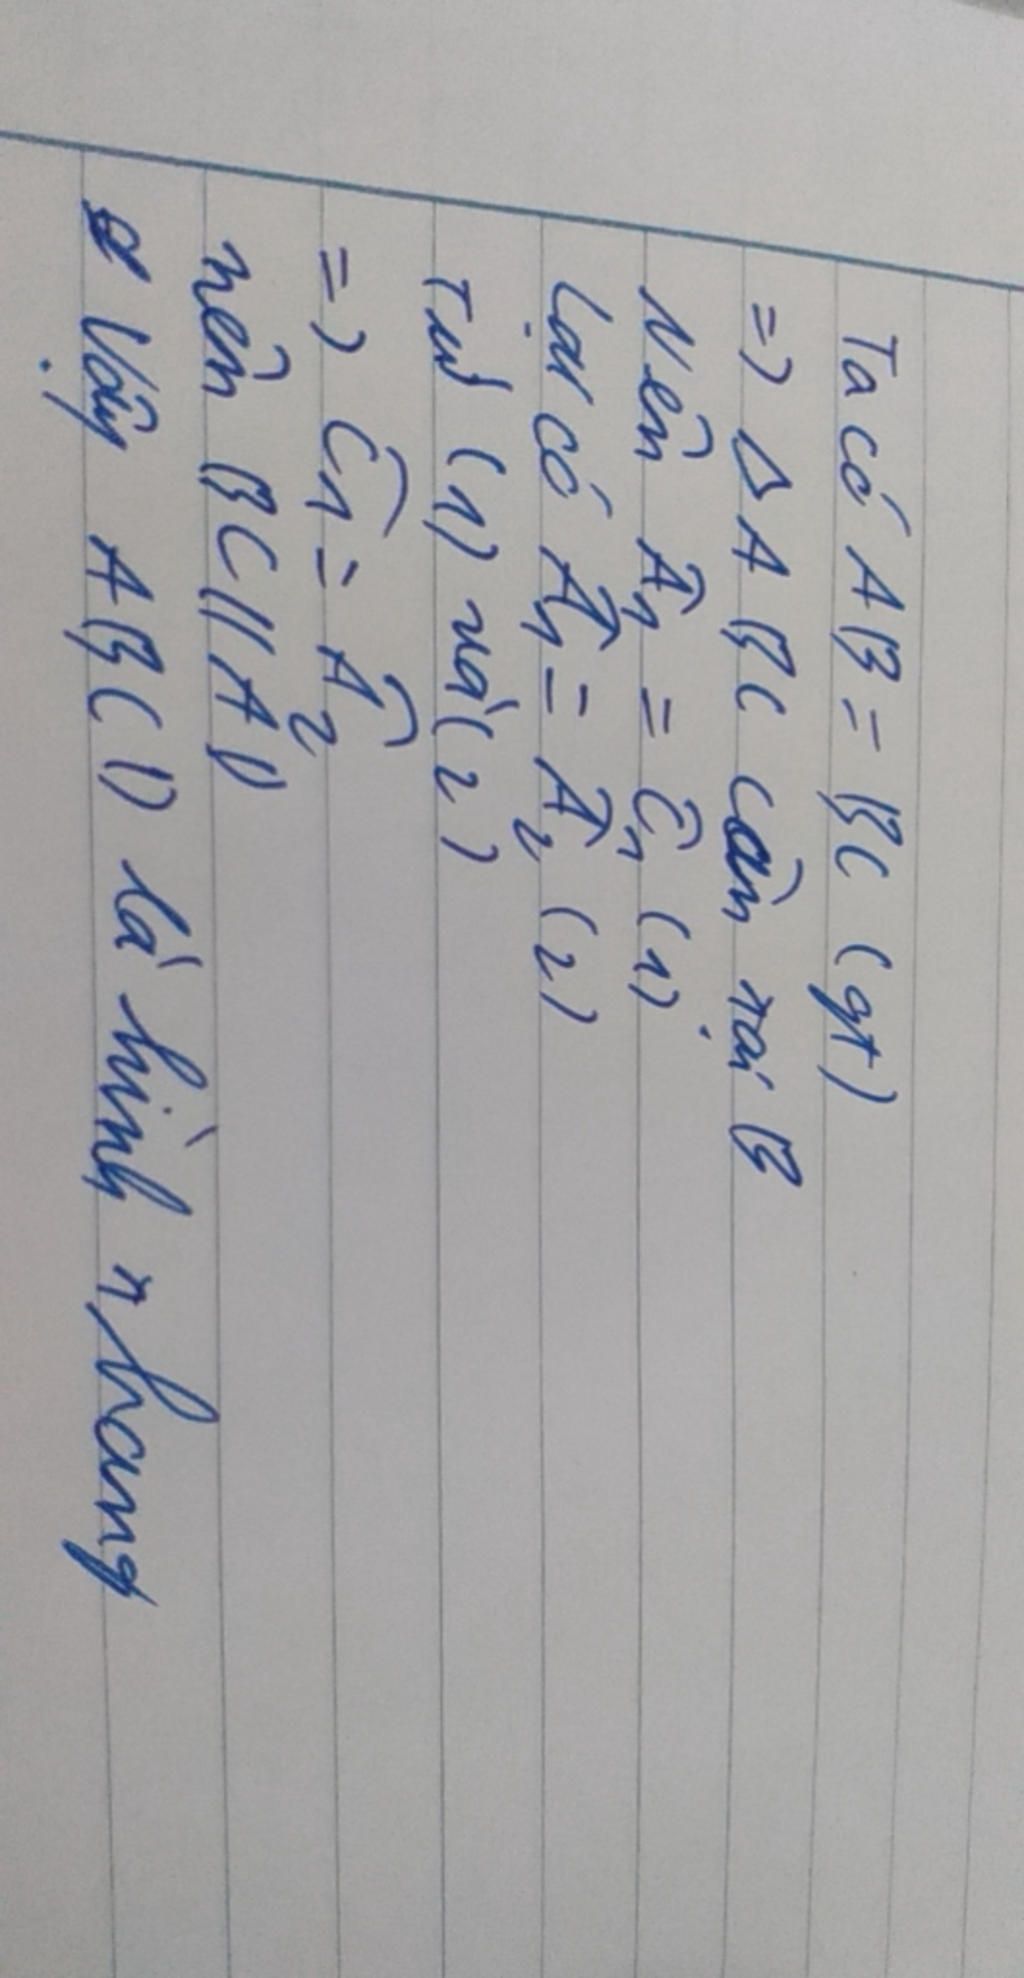 Ta có AB = BC (gt)
=> Δ ABC cân tại B
Nên Â₁ = Ĉ₁ (1)
Lại có Â₁ = Â₂ (2)
Từ (1) và (2)
=> Ĉ₁ = Â₂
nên BC // AD
Vậy ABCD là hình thang